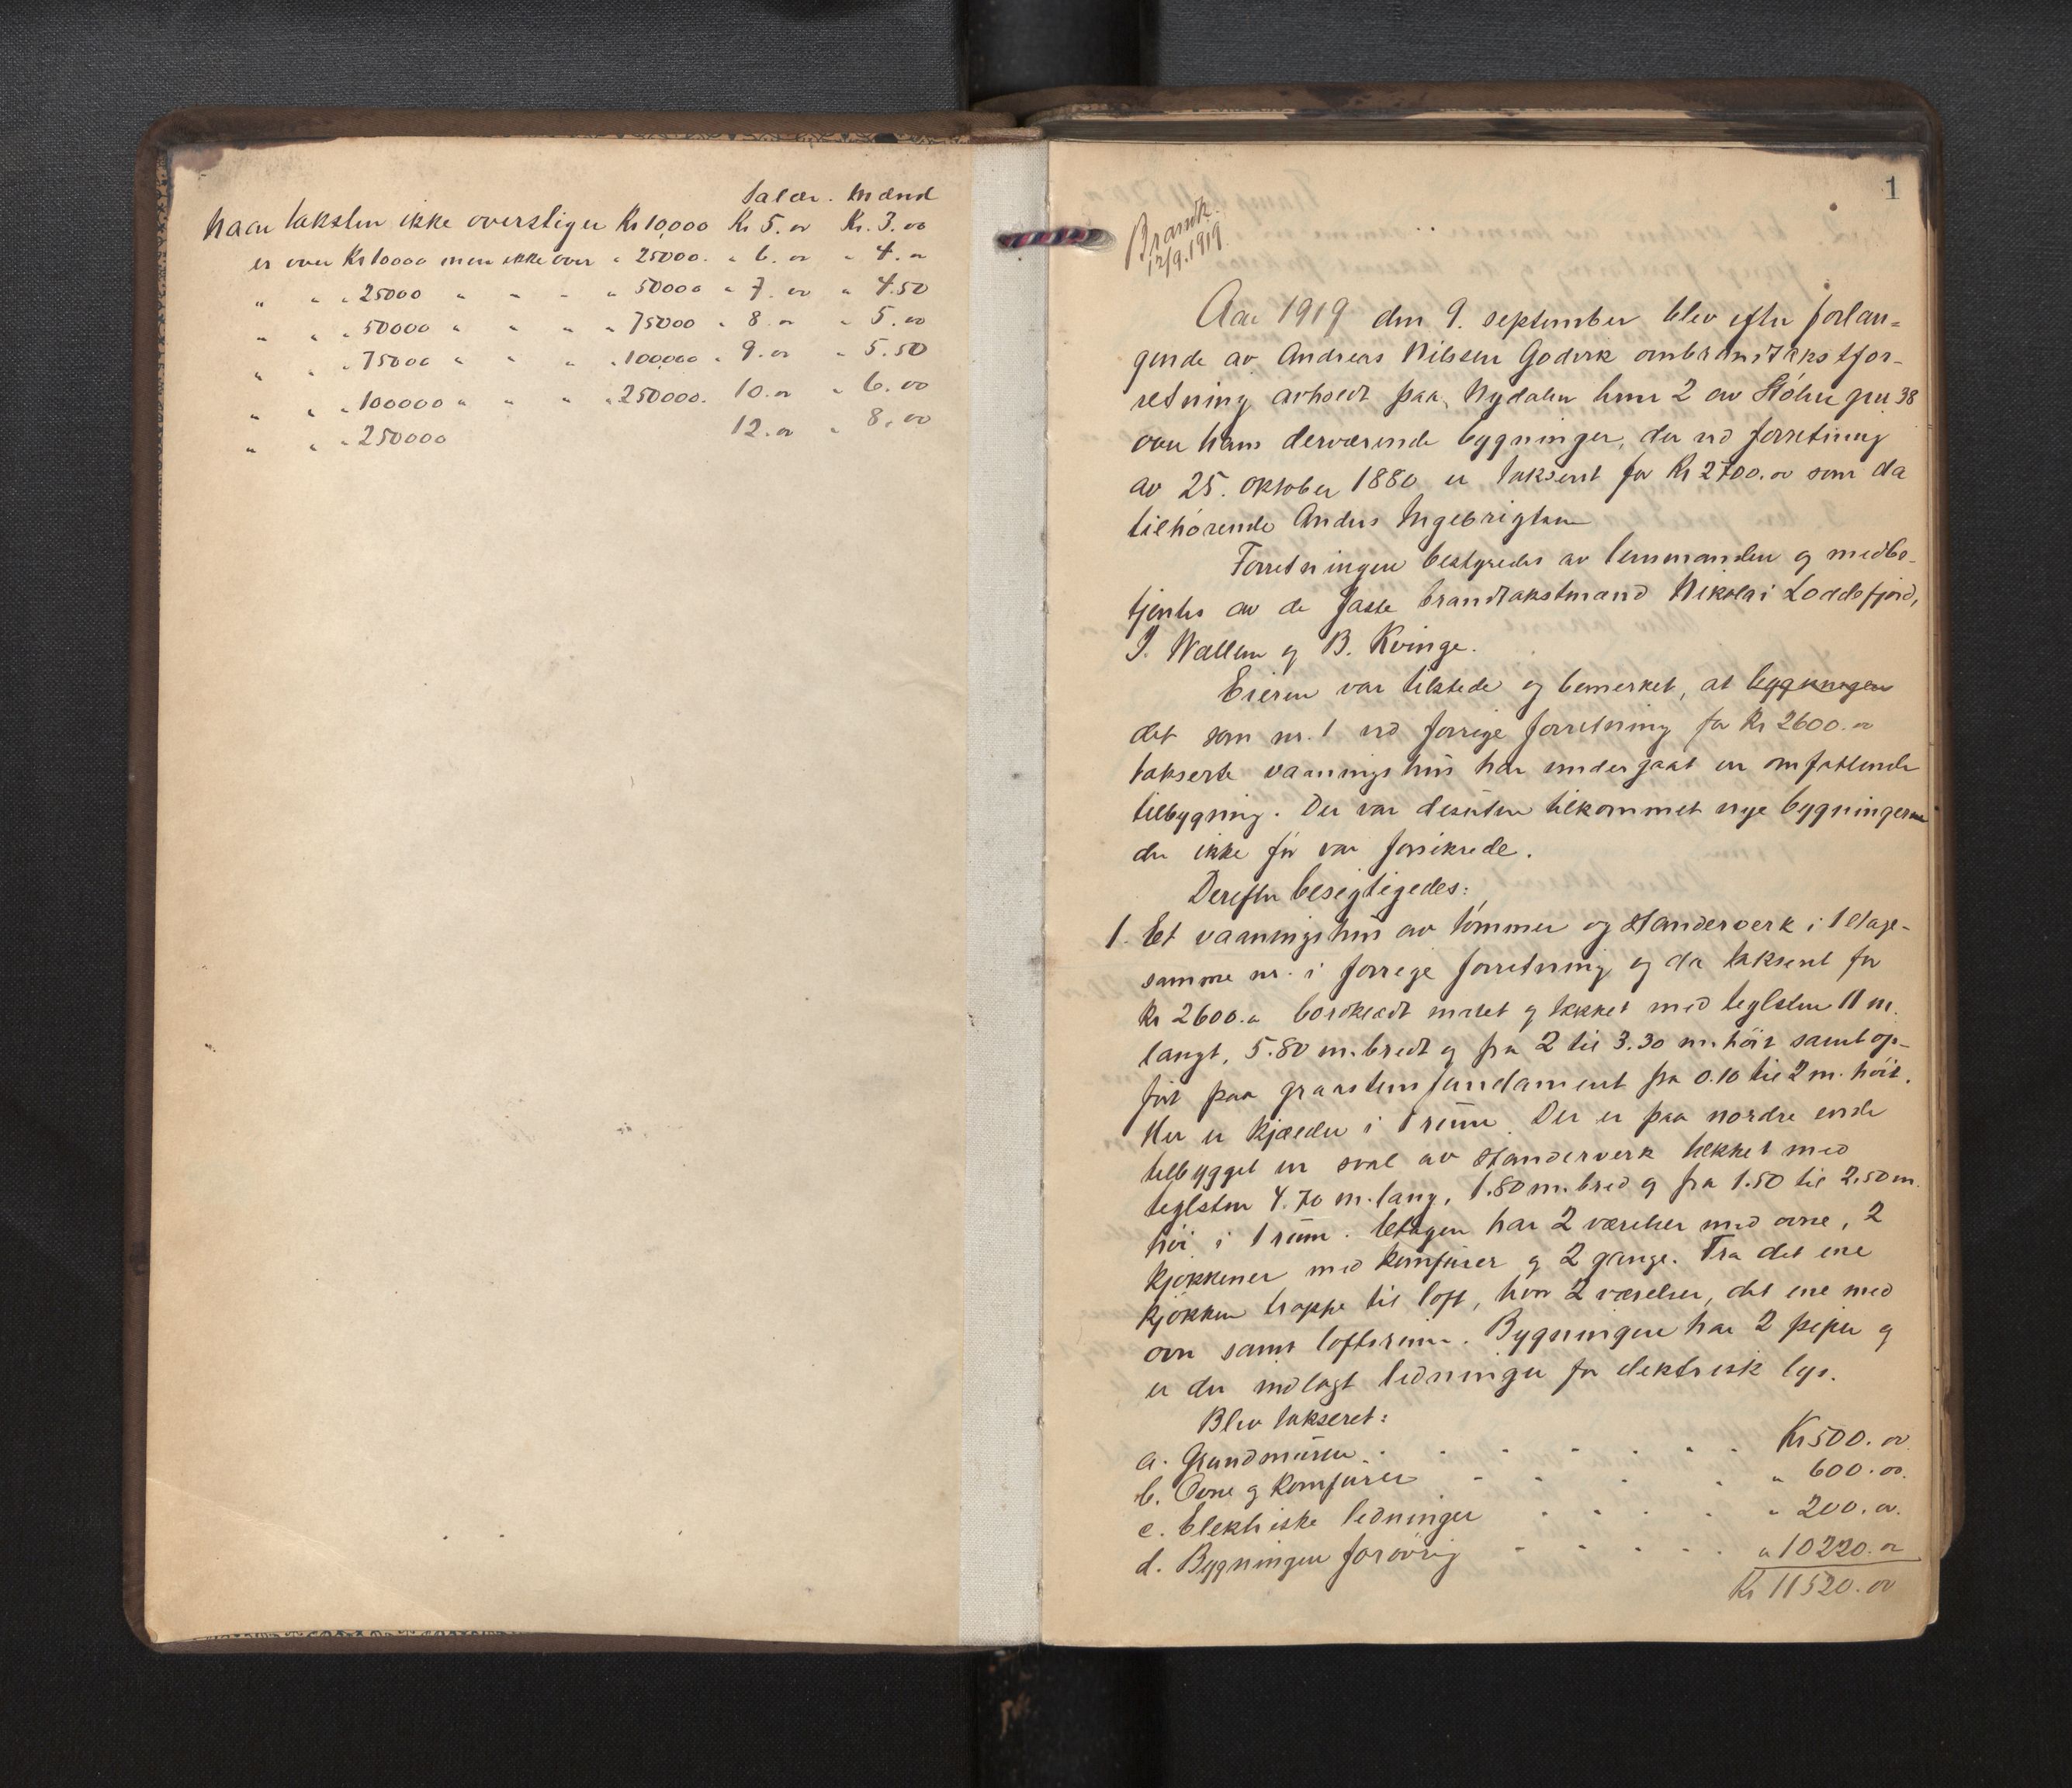 Salær. Mænd
Naar taksten ikke overstiger Kr 10,000 Kr 5.00 Kr. 3.00
er over Kr 10000 men ikke over " 25000. " 6.00 " 4.00
" " " 25000 " " " " 50000 " 7.00 " 4.50
" " " 50000 " " " " 75000 " 8.00 " 5.00
" " " 75000 " " " " 100,000 " 9.00 " 5.50
" " " 100000 " " " " 250000. 10.00 " 6.00
" " " 250000 12.00 " 8.00
1
Brandk.
12/9.1919.
Aar 1919 den 9. september blev efter forlan=
gende av Andreas Nilssen Godvik ombrandtakstfor-
retning avholdt paa Nydalen brnr 2 av gnr 38
over hans derværende bygninger, der ved forretning
av 25. oktober 1880 er taksert for Kr 2700.00 som da
tilhørende Anders Ingebrigtsen
Forretningen bestyredes av lensmanden og medbe-
tjentes av de faste brandtakstmænd Nikolai Loddefjord,
J. Wallem og B. Kvinge.
Eieren var tilstede og bemerket, at bygningen
det som nr. 1 ved forrige forretning for Kr 2600.00
takserte vaaningshus har undergaat en omfattende
tilbygning. Der var desuten tilkommet nye bygninger
der ikke før var forsikrede.
Derefter besigtigedes:
1. Et vaaningshus av tømmer og standerverk i 1 etage-
samme nr. i forrige forretning og da taksert for
Kr 2600.00 bordklædt malet og tækket med teglsten 11 m.
langt, 5.80 m. bredt og fra 2 til 3.30 m. høit samt op-
ført paa graastensfundament fra 0.10 til 2 m. høit.
Her er kjælder i 1 rum. Der er paa nordre ende
tilbygget en sval av standerverk tækket med
teglsten 4.70 m. lang, 1.80 m. bred og fra 1.50 til 2.50 m.
høi i 1 rum. Etagen har 2 værelser med ovne, 2
kjøkkener med komfurer og 2 gange. Fra det ene
kjøkken trappe til loft, hvor 2 værelser, det ene med
ovn samt loftsrum. Bygningen har 2 piper og
er der indlagt ledninger for elektrisk lys.
Blev takseret:
a. Grundmuren . . . . . . Kr 500.00
b. Ovne og komfurer . . . . " 600.00.
c. Elektriske ledninger . . . . " 200.00.
d. Bygningen forøvrig . . . . . " 10220.00
Kr 11520.00